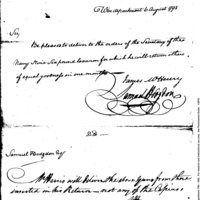 War department 6 August 1798
Sir,
Be pleased to deliver to the orders of the Secretary of the
Navy Nine Six pound Cannon for which he will return others
of equal goodness in one month
James McHenry
Samuel Hodgdon
Samuel Hodgdon Esq
Mr Harris will deliver the above Guns from those
mounted in his Return — not any of the Capt